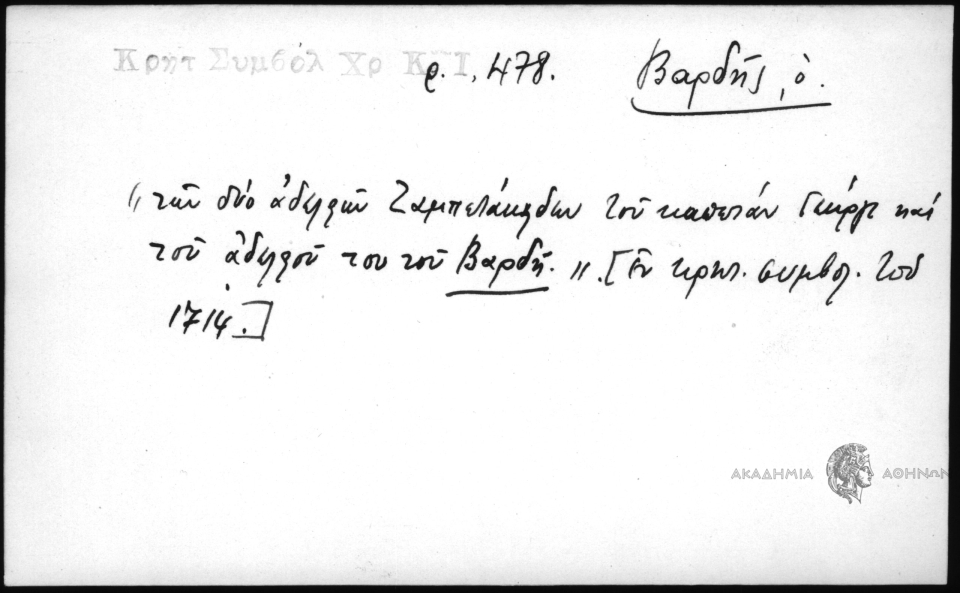 Κρητ Συμβόλ Χρ Κ Ι ρ. , 478. Βαρδῆς, ὁ.
"τῶν δύο ἀδερφῶν Ζαμπετάκηδων τοῦ καπετάν Γιώργι καί
τοῦ ἀδερφοῦ του τοῦ Βαρδῆ.". [Ἐν κρητ. συμβολ. τοῦ
1714.]
ΑΚΑΔΗΜΙΑ ΑΘΗΝΩΝ